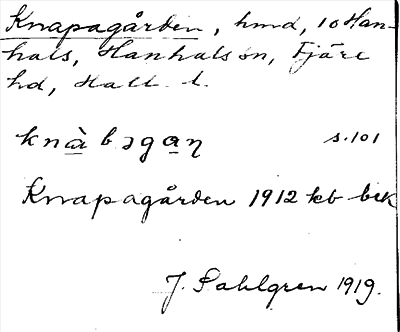 Knapagården, hmd, 10 Han-
hals, Hanhals sn, Fjäre
hd, Hall. l.
knàbəgaη s. 101
Knapagården 1912 kb bek
J. Sahlgren 1919.